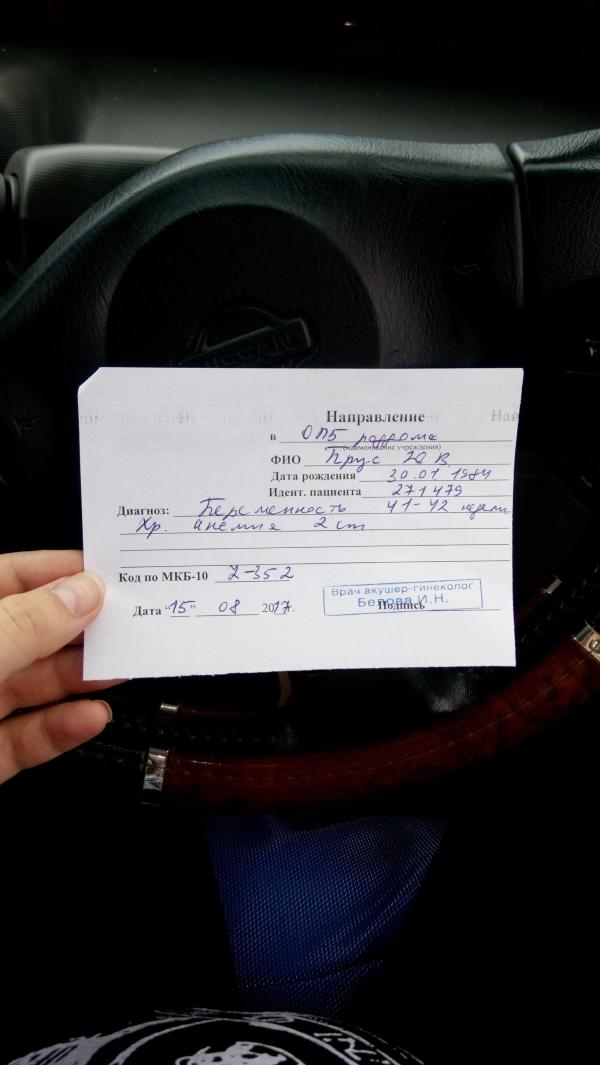 NISSAN
Направление
в ОПБ роддома
(наименование учреждения)
ФИО Прус Ю В.
Дата рождения 30.01.1984
Идент. пациента 271479
Диагноз: Беременность 41-42 недели
Хр. анемия 2 ст.
Код по МКБ-10 Z-35.2
Врач акушер-гинеколог
Белова И.Н.
Дата "15" 08 2017г. Подпись